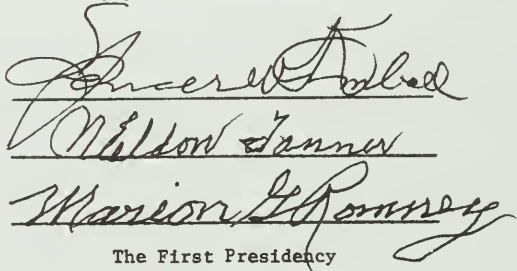 Spencer W. Kimball
N Eldon Tanner
Marion G. Romney
The First Presidency